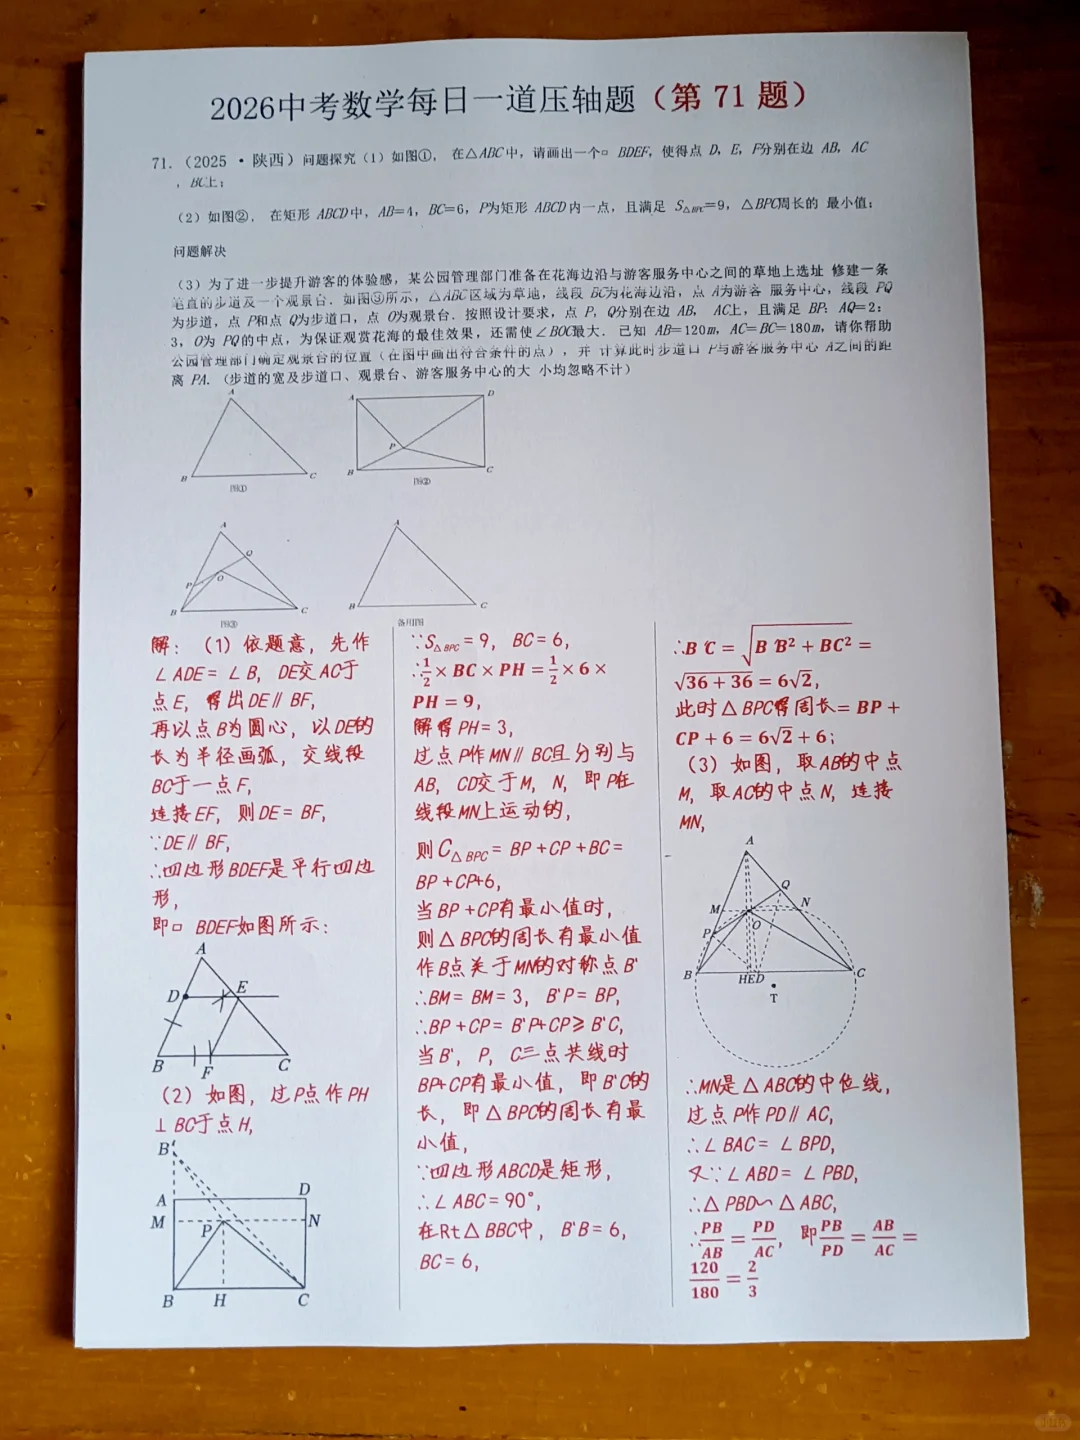 2026中考数学每日一道压轴题（第 71 题）
71.（2025 · 陕西）问题探究（1）如图①， 在△ABC中，请画出一个▱ BDEF，使得点 D，E，F分别在边 AB， AC
，BC上；
（2）如图②， 在矩形 ABCD中，AB=4，BC=6，P为矩形 ABCD内一点，且满足 S△BPC=9，△BPC周长的 最小值；
问题解决
（3）为了进一步提升游客的体验感，某公园管理部门准备在花海边沿与游客服务中心之间的草地上选址 修建一条
笔直的步道及一个观景台．如图③所示，△ABC区域为草地，线段 BC为花海边沿，点 A为游客 服务中心，线段 PQ
为步道，点 P和点 Q为步道口，点 O为观景台．按照设计要求，点 P，Q分别在边 AB， AC上，且满足 BP：AQ=2：
3，O为 PQ的中点，为保证观赏花海的最佳效果，还需使∠BOC最大．已知 AB=120m，AC=BC=180m，请你帮助
公园管理部门确定观景台的位置（在图中画出符合条件的点），并 计算此时步道口 P与游客服务中心 A之间的距
离 PA．（步道的宽及步道口、观景台、游客服务中心的大 小均忽略不计）
A
B
C
图①
A
D
P
B
C
图②
A
Q
P
O
B
C
图③
A
B
C
备用图
解：（1）依题意，先作
∠ADE=∠B，DE交AC于
点E，得出DE∥BF，
再以点B为圆心，以DE的
长为半径画弧，交线段
BC于一点F，
连接EF，则DE=BF，
∵DE∥BF，
∴四边形BDEF是平行四边
形，
即▱ BDEF如图所示：
A
D
E
B
F
C
（2）如图，过P点作PH
⊥BC于点H，
B'
A
D
M
P
N
B
H
C
∵S△BPC=9，BC=6，
∴1/2×BC×PH=1/2×6×
PH=9，
解得PH=3，
过点P作MN∥BC且分别与
AB，CD交于M，N，即P在
线段MN上运动的，
则C△BPC=BP+CP+BC=
BP+CP+6，
当BP+CP有最小值时，
则△BPC的周长有最小值
作B点关于MN的对称点B'
∴BM=BM=3，B'P=BP，
∴BP+CP=B'P+CP≥B'C，
当B'，P，C三点共线时
BP+CP有最小值，即B'C的
长，即△BPC的周长有最
小值，
∵四边形ABCD是矩形，
∴∠ABC=90°，
在Rt△BBC中，B'B=6，
BC=6，
∴B'C=√(B'B²+BC²)=
√(36+36)=6√2，
此时△BPC得周长=BP+
CP+6=6√2+6；
（3）如图，取AB的中点
M，取AC的中点N，连接
MN，
A
Q
M
N
P
O
B
HED
C
T
∴MN是△ABC的中位线，
过点P作PD∥AC，
∴∠BAC=∠BPD，
又∵∠ABD=∠PBD，
∴△PBD∽△ABC，
∴PB/AB=PD/AC，即PB/PD=AB/AC=
120/180=2/3